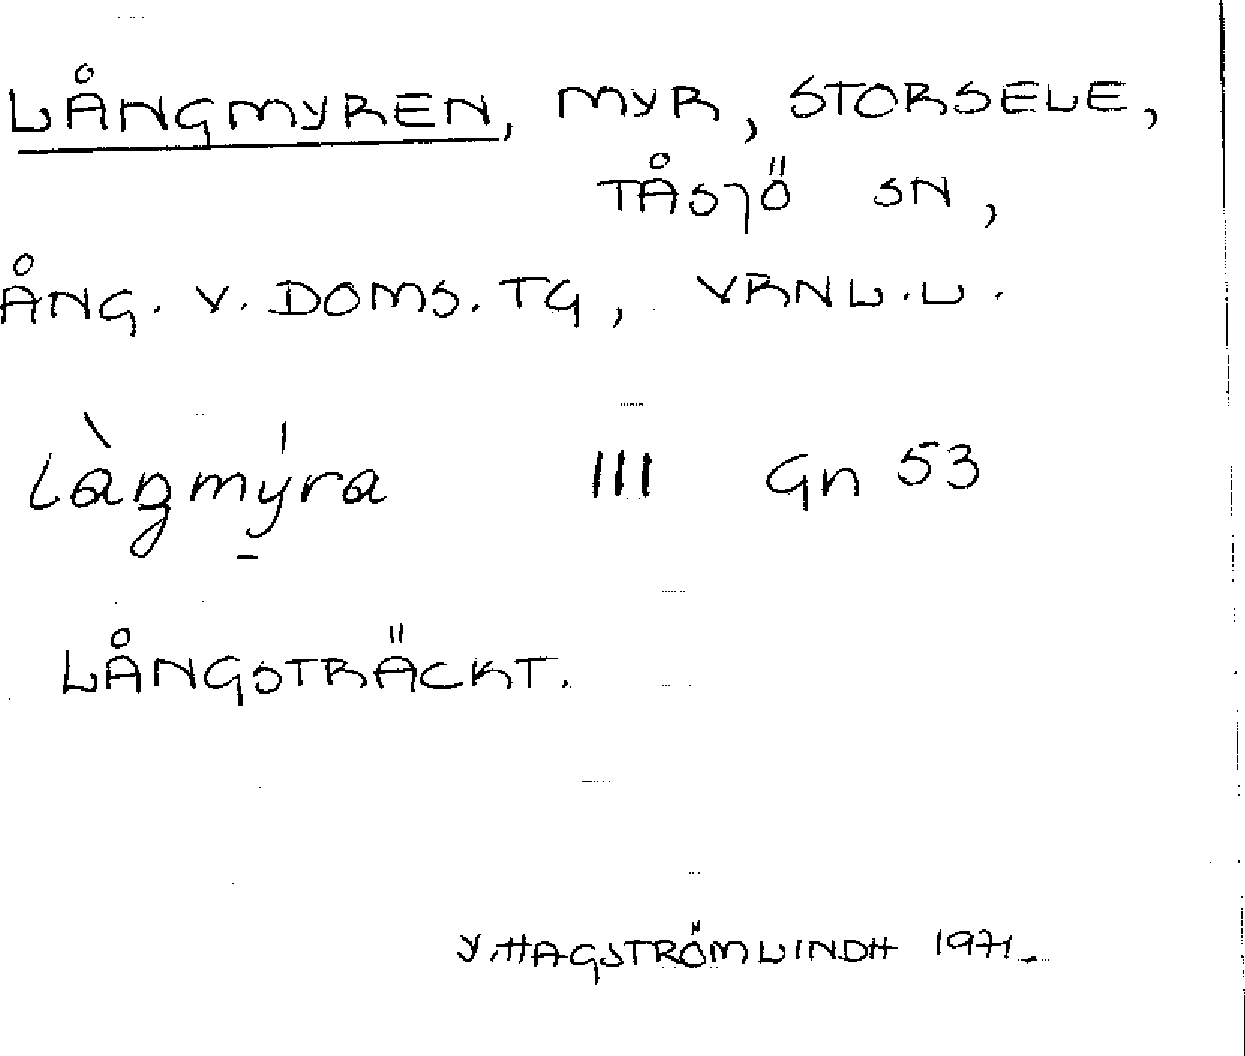 LÅNGMYREN, MYR, STORSELE,
TÅSJÖ SN,
ÅNG. V. DOMS. TG, VRNL.L.
làŋmý̠ra III Gn 53
LÅNGSTRÄCKT.
Y. HAGSTRÖM LINDH 1971.